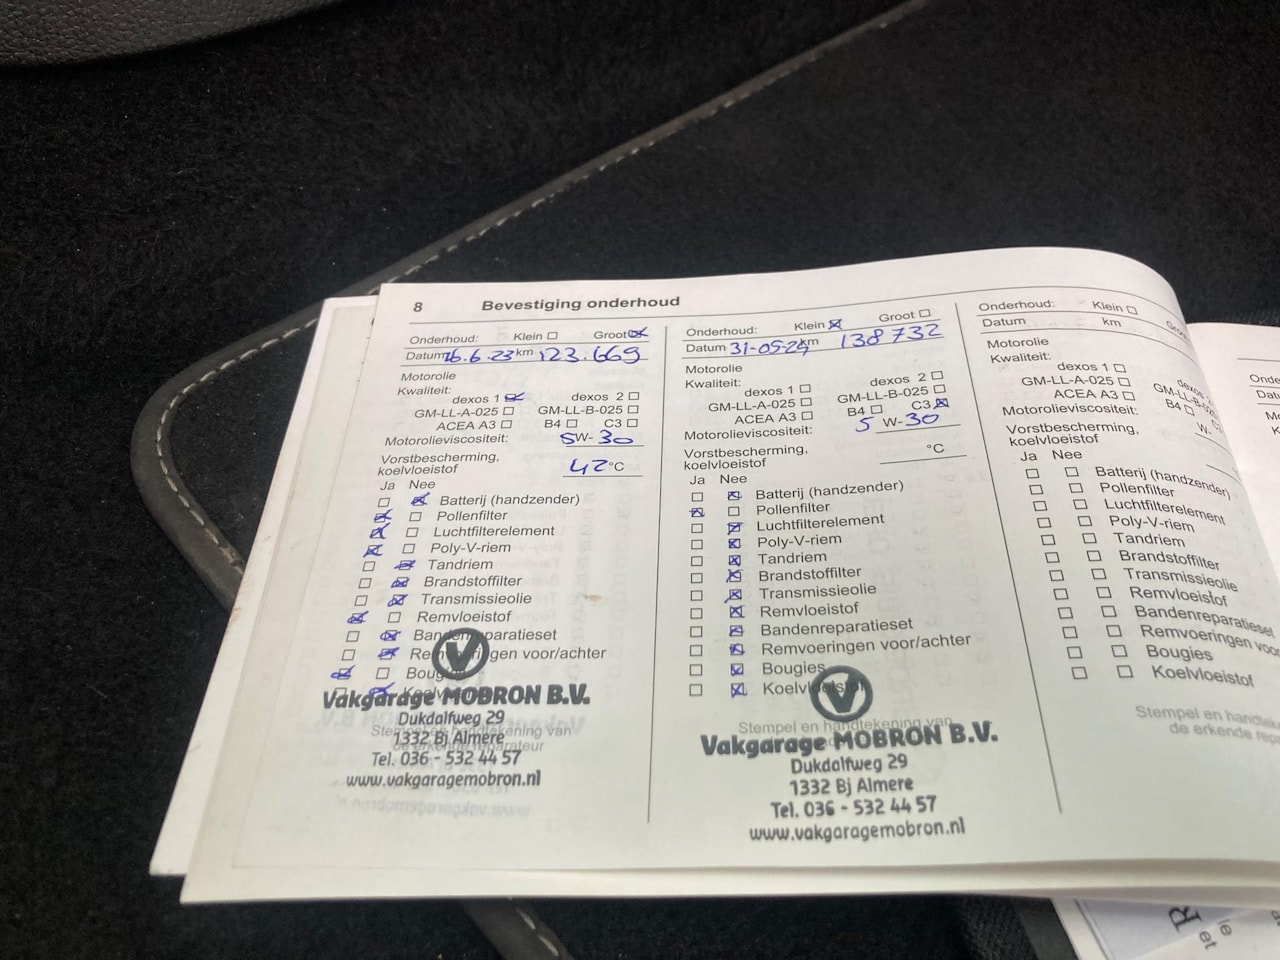 8 Bevestiging onderhoud
Onderhoud: Klein ☐ Groot ☒
Datum 16.6.23 km 123.669
Motorolie
Kwaliteit:
dexos 1 ☒ dexos 2 ☐
GM-LL-A-025 ☐ GM-LL-B-025 ☐
ACEA A3 ☐ B4 ☐ C3 ☐
Motorolieviscositeit: 5W-30
Vorstbescherming,
koelvloeistof 42 °C
Ja Nee
☐ ☒ Batterij (handzender)
☒ ☐ Pollenfilter
☒ ☐ Luchtfilterelement
☒ ☐ Poly-V-riem
☐ ☒ Tandriem
☐ ☒ Brandstoffilter
☐ ☒ Transmissieolie
☒ ☐ Remvloeistof
☐ ☒ Bandenreparatieset
☐ ☒ Remvoeringen voor/achter
☒ ☐ Bougies
☐ ☒ Koelvloeistof
Stempel en handtekening van
de erkende reparateur
Vakgarage MOBRON B.V.
Dukdalfweg 29
1332 Bj Almere
Tel. 036 - 532 44 57
www.vakgaragemobron.nl
Onderhoud: Klein ☒ Groot ☐
Datum 31-05-24 km 138732
Motorolie
Kwaliteit:
dexos 1 ☐ dexos 2 ☐
GM-LL-A-025 ☐ GM-LL-B-025 ☐
ACEA A3 ☐ B4 ☐ C3 ☒
Motorolieviscositeit: 5 W-30
Vorstbescherming,
koelvloeistof °C
Ja Nee
☐ ☒ Batterij (handzender)
☒ ☐ Pollenfilter
☐ ☒ Luchtfilterelement
☐ ☒ Poly-V-riem
☐ ☒ Tandriem
☐ ☒ Brandstoffilter
☐ ☒ Transmissieolie
☐ ☒ Remvloeistof
☐ ☒ Bandenreparatieset
☐ ☒ Remvoeringen voor/achter
☐ ☒ Bougies
☐ ☒ Koelvloeistof
Stempel en handtekening van
Vakgarage MOBRON B.V.
Dukdalfweg 29
1332 Bj Almere
Tel. 036 - 532 44 57
www.vakgaragemobron.nl
Onderhoud: Klein ☐
Datum km
Motorolie
Kwaliteit:
dexos 1 ☐
GM-LL-A-025 ☐
ACEA A3 ☐ B4 ☐
Motorolieviscositeit: W-
Vorstbescherming,
koelvloeistof
Ja Nee
☐ ☐ Batterij (handzender)
☐ ☐ Pollenfilter
☐ ☐ Luchtfilterelement
☐ ☐ Poly-V-riem
☐ ☐ Tandriem
☐ ☐ Brandstoffilter
☐ ☐ Transmissieolie
☐ ☐ Remvloeistof
☐ ☐ Bandenreparatieset
☐ ☐ Remvoeringen voor
☐ ☐ Bougies
☐ ☐ Koelvloeistof
Stempel en
de erkende